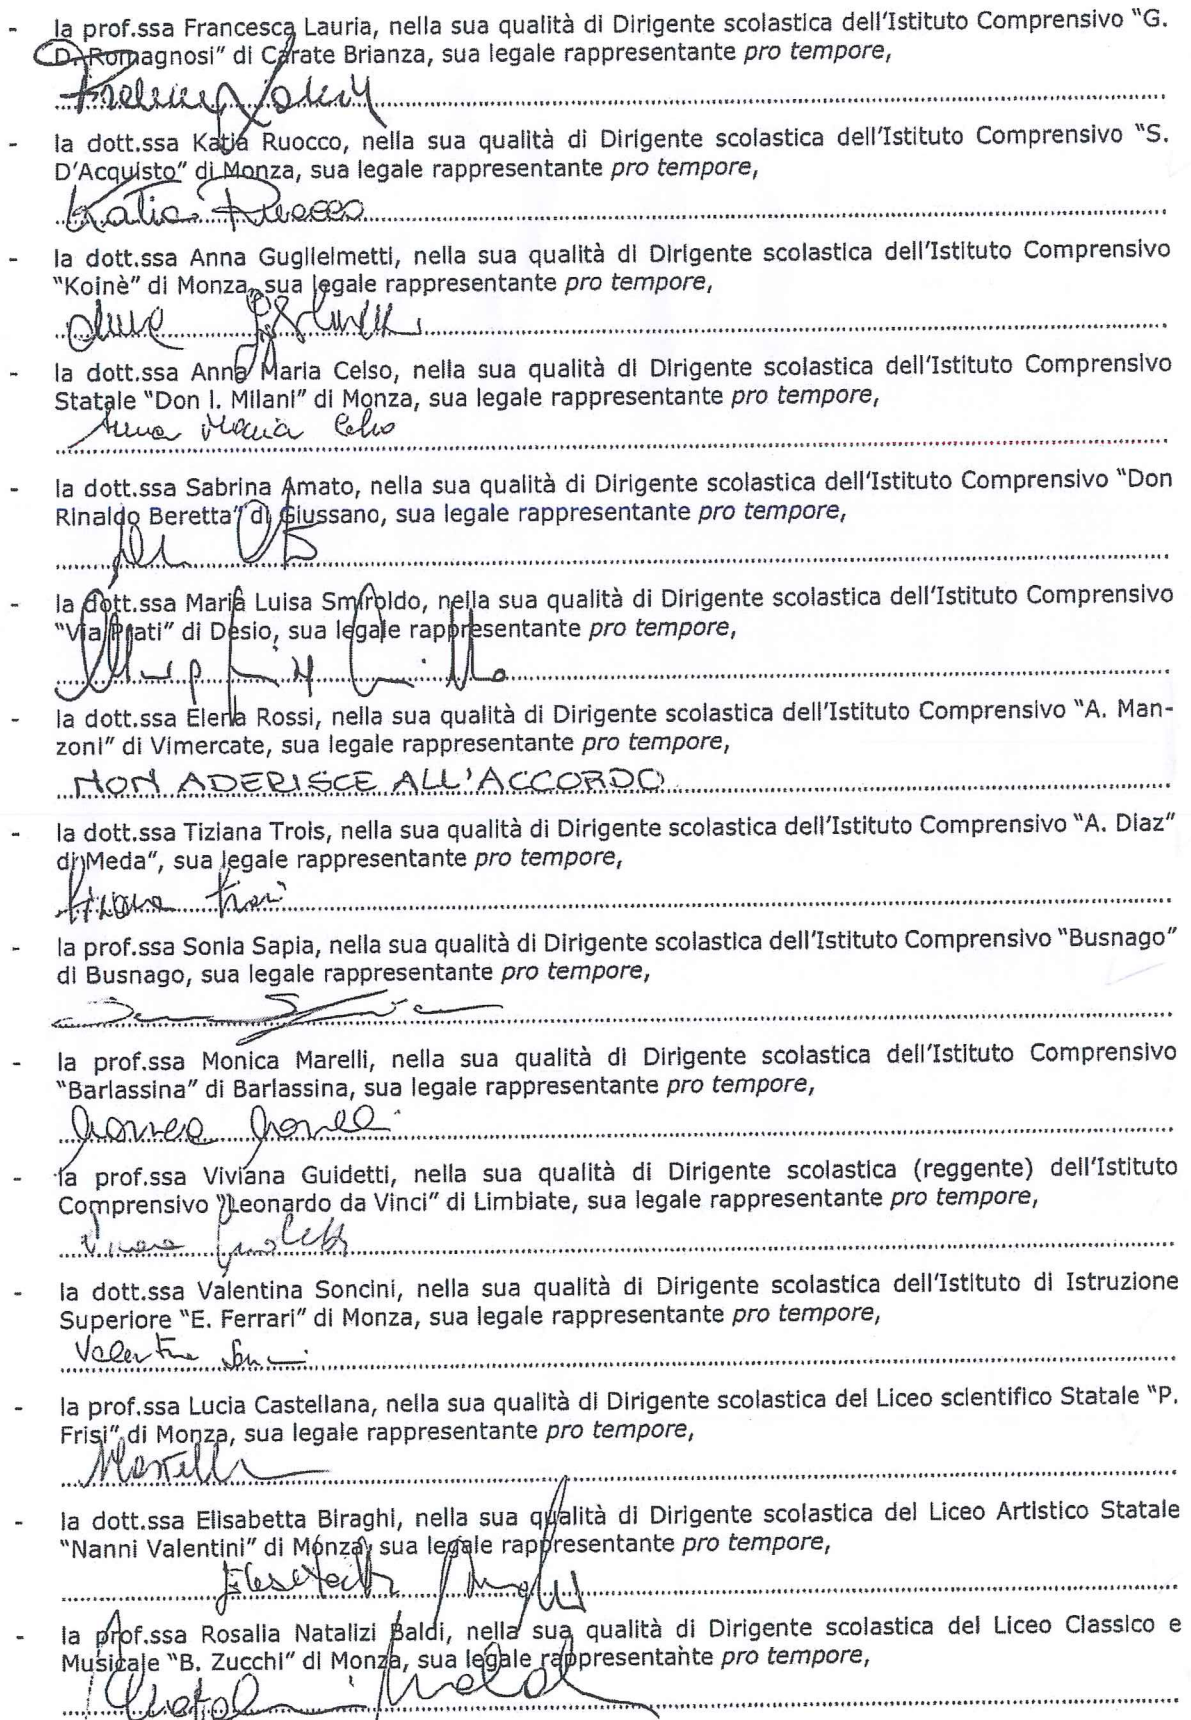 - la prof.ssa Francesca Lauria, nella sua qualità di Dirigente scolastica dell'Istituto Comprensivo "G.
D. Romagnosi" di Carate Brianza, sua legale rappresentante pro tempore,
- la dott.ssa Katja Ruocco, nella sua qualità di Dirigente scolastica dell'Istituto Comprensivo "S.
D'Acquisto" di Monza, sua legale rappresentante pro tempore,
Katia Ruocco
- la dott.ssa Anna Guglielmetti, nella sua qualità di Dirigente scolastica dell'Istituto Comprensivo
"Koinè" di Monza, sua legale rappresentante pro tempore,
- la dott.ssa Anna Maria Celso, nella sua qualità di Dirigente scolastica dell'Istituto Comprensivo
Statale "Don I. Milani" di Monza, sua legale rappresentante pro tempore,
Anna Maria Celso
- la dott.ssa Sabrina Amato, nella sua qualità di Dirigente scolastica dell'Istituto Comprensivo "Don
Rinaldo Beretta" di Giussano, sua legale rappresentante pro tempore,
- la dott.ssa Maria Luisa Smiroldo, nella sua qualità di Dirigente scolastica dell'Istituto Comprensivo
"Via Prati" di Desio, sua legale rappresentante pro tempore,
- la dott.ssa Elena Rossi, nella sua qualità di Dirigente scolastica dell'Istituto Comprensivo "A. Man-
zoni" di Vimercate, sua legale rappresentante pro tempore,
NON ADERISCE ALL'ACCORDO
- la dott.ssa Tiziana Trois, nella sua qualità di Dirigente scolastica dell'Istituto Comprensivo "A. Diaz"
di Meda", sua legale rappresentante pro tempore,
Tiziana Trois
- la prof.ssa Sonia Sapia, nella sua qualità di Dirigente scolastica dell'Istituto Comprensivo "Busnago"
di Busnago, sua legale rappresentante pro tempore,
- la prof.ssa Monica Marelli, nella sua qualità di Dirigente scolastica dell'Istituto Comprensivo
"Barlassina" di Barlassina, sua legale rappresentante pro tempore,
Monica Marelli
- la prof.ssa Viviana Guidetti, nella sua qualità di Dirigente scolastica (reggente) dell'Istituto
Comprensivo "Leonardo da Vinci" di Limbiate, sua legale rappresentante pro tempore,
- la dott.ssa Valentina Soncini, nella sua qualità di Dirigente scolastica dell'Istituto di Istruzione
Superiore "E. Ferrari" di Monza, sua legale rappresentante pro tempore,
Valentina
- la prof.ssa Lucia Castellana, nella sua qualità di Dirigente scolastica del Liceo scientifico Statale "P.
Frisi" di Monza, sua legale rappresentante pro tempore,
- la dott.ssa Elisabetta Biraghi, nella sua qualità di Dirigente scolastica del Liceo Artistico Statale
"Nanni Valentini" di Monza, sua legale rappresentante pro tempore,
- la prof.ssa Rosalia Natalizi Baldi, nella sua qualità di Dirigente scolastica del Liceo Classico e
Musicale "B. Zucchi" di Monza, sua legale rappresentante pro tempore,